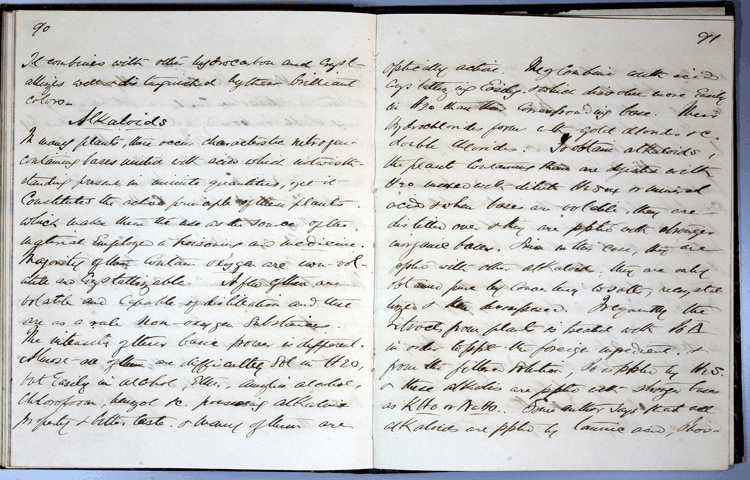 90
It combines with other hydrocarbon and cryst-
allizes well distinguished by their brilliant
colors.
Alkaloids
In many plants, there occur characteristic nitrogen-
containing bases united with acid which notwith-
standing present in minute quantities, yet it
Constitutes the active principle of these plants
which make them the use as the source of the
material Employed in poisoning and medicine.
Majority of them Contain oxygen are non-vol-
atile and Crystallizable. A few of them are
volatile and Capable of distillation and these
are as a rule Non-oxygen Substances.
The intensity of their basic power is different.
Almost all of them are difficultly Sol in H2O,
but Easily in alcohol, Ether, amylic alcohol,
Chloroform, benzol &c. possessing alkaline
property & bitter taste. & many of them are
91
optically active. They Combine with acid
Crystallizing Easily, & which dissolve more Easily
in H2O than their Corresponding base. Their
Hydrochlorides form with gold chlorides &c.
double chlorides. To obtain alkaloids,
the plant Containing them are digested with
H2O mixed with dilute or mineral
acid & when bases are volatile, they are
distilled over & they are with stronger
inorganic bases. in this case, they are
with other alkaloids, they are only
obtained pure by Converting to salts, recrystal-
lized & then decomposed. Frequently the
extract from plants is treated with
in order to ppt the foreign ingredient. &
from the filtered solution, is by H2S.
& these alkaloids are with stronger bases
as KHO or NaHO. Some author says that all
alkaloids are by tannic acid, phos-